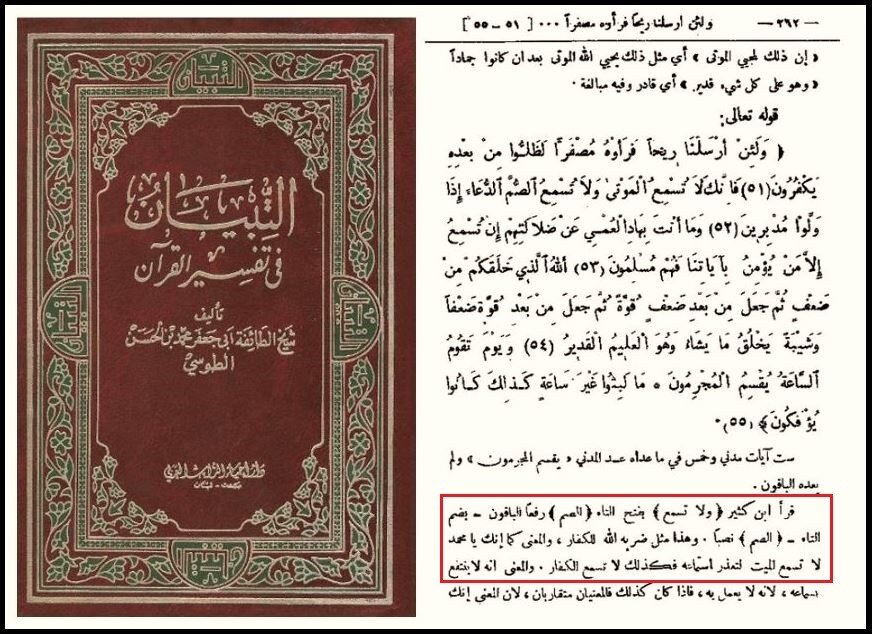 التبيان
التِّبيَانُ
في تفسير القرآن
تأليف
شيخ الطائفة أبي جعفر محمد بن الحسن
الطوسي
دار احياء التراث العربي
— ٢٦٢ — ولئن ارسلنا ريحاً فرأوه مصفراً ... [ ٥١ - ٥٥ ]
« إن ذلك لمحيي الموتى » أي مثل ذلك يحيي الله الموتى بعد ان كانوا جماداً
« وهو على كل شيء قدير » أي قادر وفيه مبالغة .
قوله تعالى:
﴿ وَلَئِنْ أَرْسَلْنَا رِيحاً فَرَأَوْهُ مُصْفَرًّا لَظَلُّوا مِنْ بَعْدِهِ
يَكْفُرُونَ (٥١) فَإِنَّكَ لَا تُسْمِعُ الْمَوْتَى وَلَا تُسْمِعُ الصُّمَّ الدُّعَاءَ إِذَا
وَلَّوْا مُدْبِرِينَ (٥٢) وَمَا أَنْتَ بِهَادِ الْعُمْيِ عَنْ ضَلَالَتِهِمْ إِنْ تُسْمِعُ
إِلَّا مَنْ يُؤْمِنُ بِآيَاتِنَا فَهُمْ مُسْلِمُونَ (٥٣) أَللهُ الَّذِي خَلَقَكُمْ مِنْ
ضَعْفٍ ثُمَّ جَعَلَ مِنْ بَعْدِ ضَعْفٍ قُوَّةً ثُمَّ جَعَلَ مِنْ بَعْدِ قُوَّةٍ ضَعْفاً
وَشَيْبَةً يَخْلُقُ مَا يَشَاءُ وَهُوَ الْعَلِيمُ الْقَدِيرُ (٥٤) وَيَوْمَ تَقُومُ
السَّاعَةُ يُقْسِمُ الْمُجْرِمُونَ ٥ مَا لَبِثُوا غَيْرَ سَاعَةٍ كَذَلِكَ كَانُوا
يُؤْفَكُونَ ﴾ (٥٥) .
ست آيات مدني وخمس في ما عداه عد المدني « يقسم المجرمون » ولم
يعده الباقون .
قرأ ابن كثير ﴿ ولا تسمع ﴾ بفتح التاء ﴿ الصم ﴾ رفعاً الباقون - بضم
التاء - ﴿ الصم ﴾ نصباً . وهذا مثل ضربه الله للكفار ، والمعنى كما إنك يا محمد
لا تسمع الميت لتعذر استماعه فكذلك لا تسمع الكفار . والمعنى انه لا ينتفع
بسماعه ، لانه لا يعمل به ، فاذا كان كذلك فالمعنيان متقاربان ، لان المعنى إنك